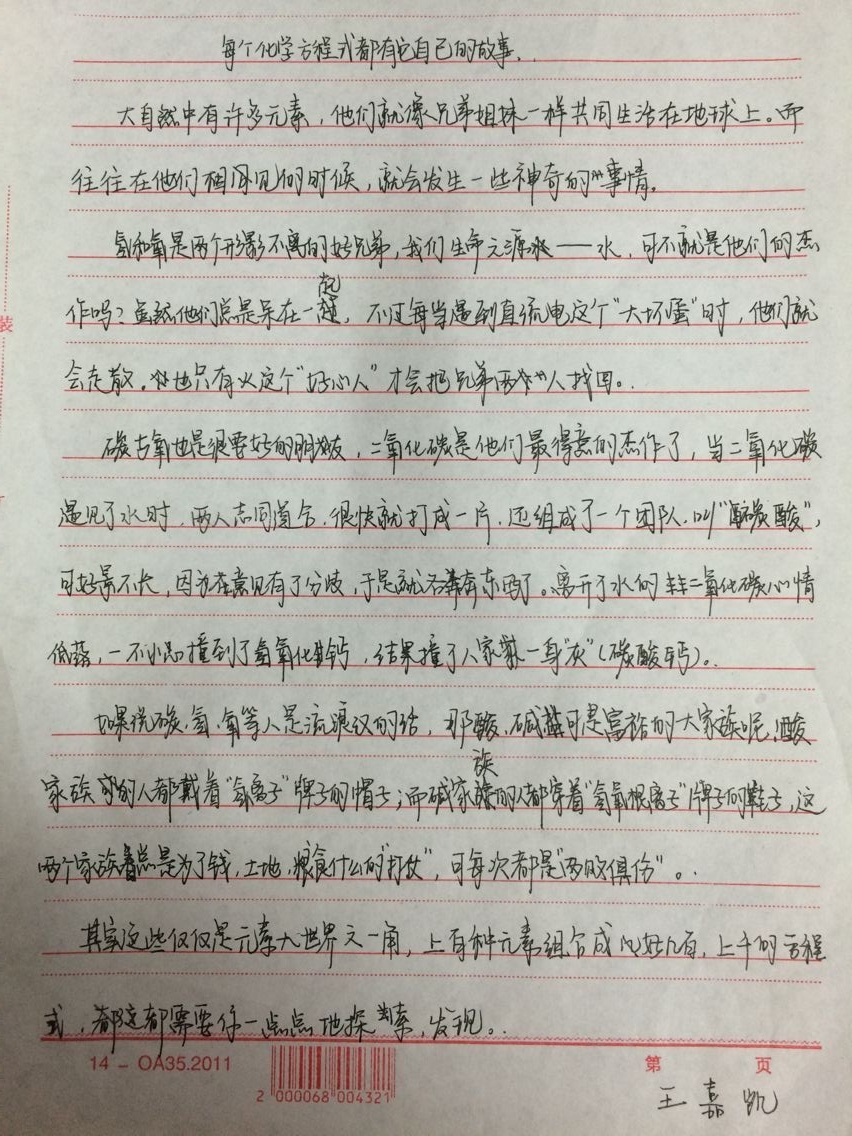 每个化学方程式都有它自己的故事..
大自然中有许多元素，他们就像兄弟姐妹一样共同生活在地球上。而
往往在他们相遇见的时候，就会发生一些神奇的事情。
氢和氧是两个形影不离的好兄弟，我们生命之源——水，可不就是他们的杰
作吗？虽然他们总是呆在一起，不过每当遇到直流电这个“大坏蛋”时，他们就
会走散。也只有火这个“好心人”才会把兄弟两人找回。
碳与氧也是很要好的朋友，二氧化碳是他们最得意的杰作了，当二氧化碳
遇见了水时，两人志同道合，很快就打成一片，还组成了一个团队，叫“碳酸”，
可好景不长，因为在意见有了分歧，于是就各奔东西了。离开了水的二氧化碳心情
低落，一不小心撞到了氢氧化钙，结果撞了人家一身“灰”（碳酸钙）。
如果说碳，氢，氧等人是流浪汉的话，那酸、碱可是富裕的大家族呢，酸
家族的人都戴着“氢离子”牌子的帽子；而碱家族的人都穿着“氢氧根离子”牌子的鞋子，这
两个家族总是为了钱，土地，粮食什么的“打仗”，可每次都是“两败俱伤”。
其实这些仅仅是元素大世界之一角，上百种元素组合成好几百，上千的方程
式，这都需要你一点点地探索，发现。
14 - OA35.2011
2 000068 004321
第 页
王嘉凯